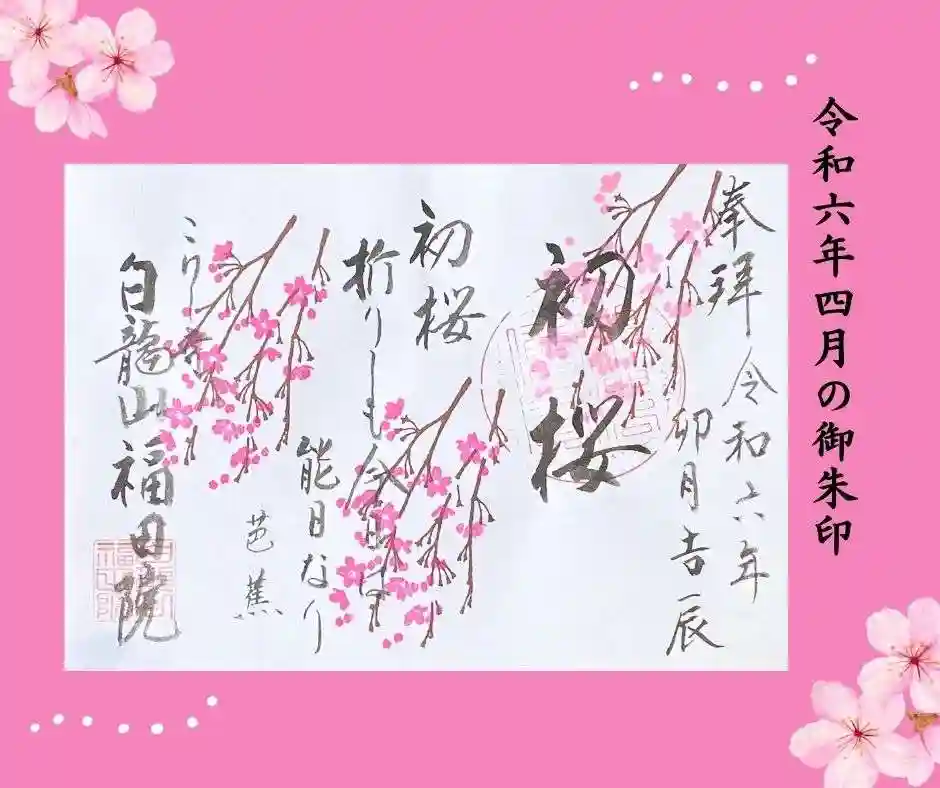 令和六年四月の御朱印
奉拝 令和六年
卯月吉辰
初桜
初桜
折りしも今日は
能日なり
芭蕉
こわし寺
白龍山福田院